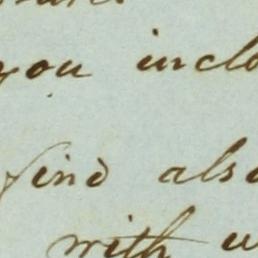 you inclo
find also
with